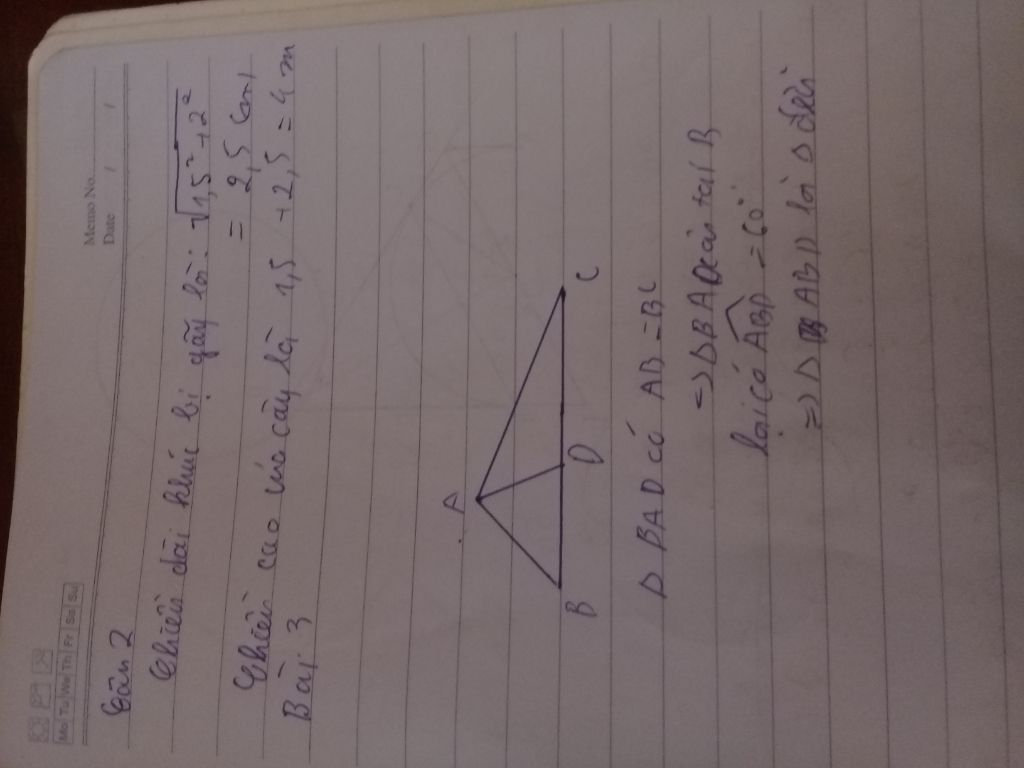 Memo No.
Date / /
Mo Tu We Th Fr Sa Su
Câu 2
Chiều dài khúc bị gãy là: √1,5²+2²
= 2,5 (cm)
Chiều cao của cây là 1,5 + 2,5 = 4 m
Bài 3
A
B D C
Δ BAD có AB = BC
=> Δ BAD cân tại B
lại có ABD = 60°
=> Δ ABD là Δ đều